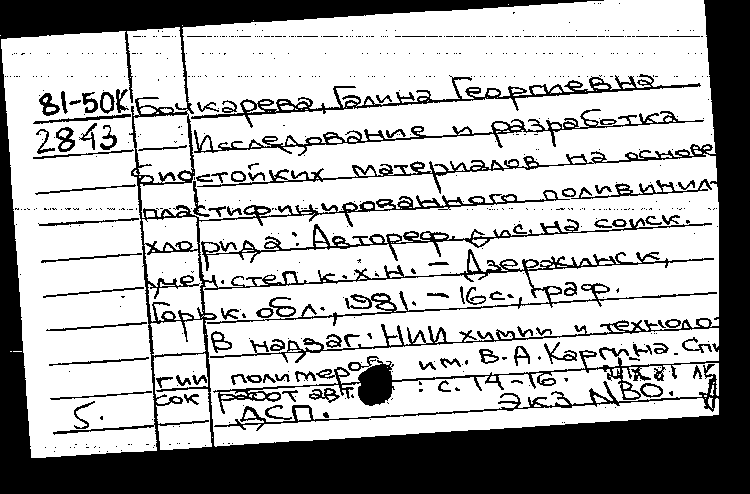 81-50К Бочкарева, Галина Георгиевна
2843 Исследование и разработка
биостойких материалов на основе
пластифицированного поливинил-
хлорида: Автореф. дис. на соиск.
учен. степ. к. х. н. – Дзержинск,
Горьк. обл., 1981. – 16 с., граф.
В надзаг.: НИИ химии и техноло-
гии полимеров им. В. А. Каргина. Спи
сок работ авт. : с. 14–16.
5. ДСП. Экз №80.